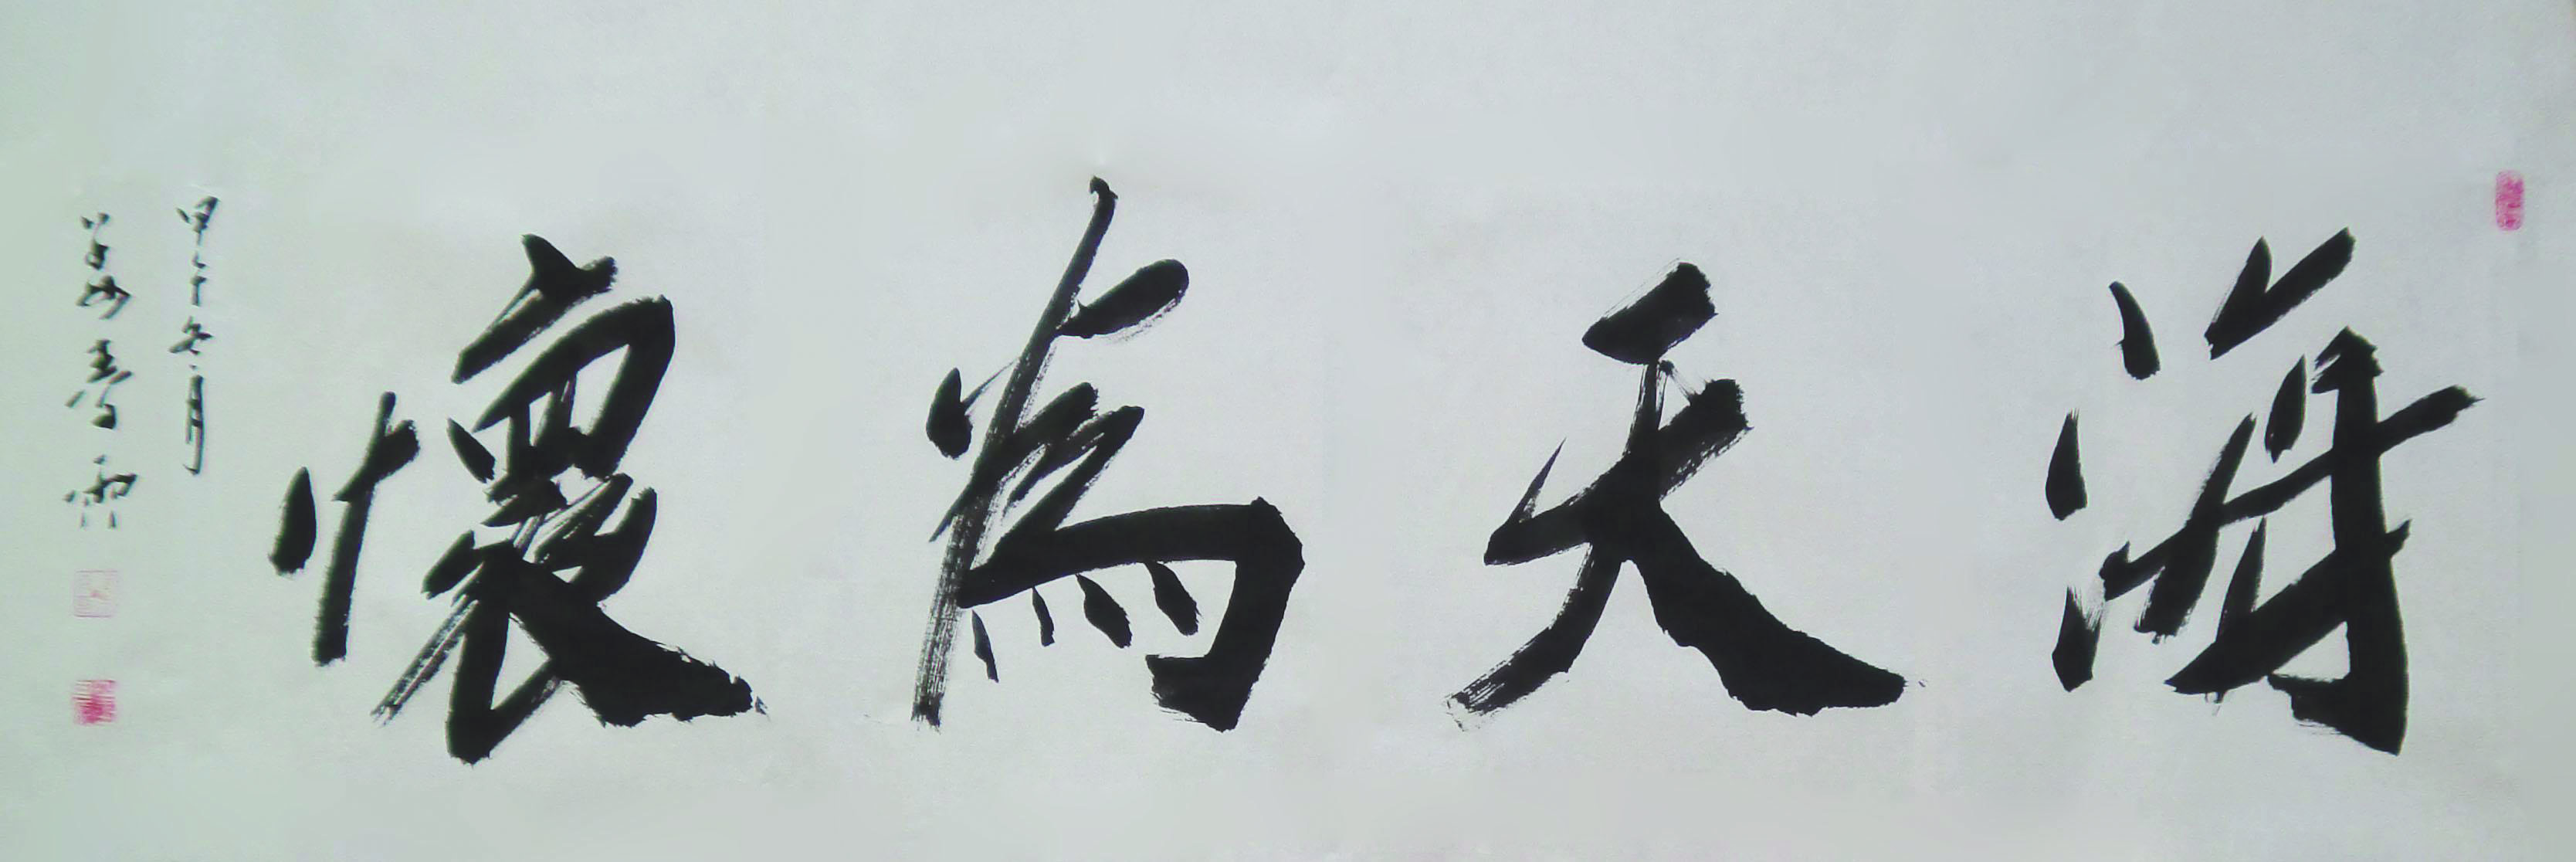 海天為懷
甲午冬月